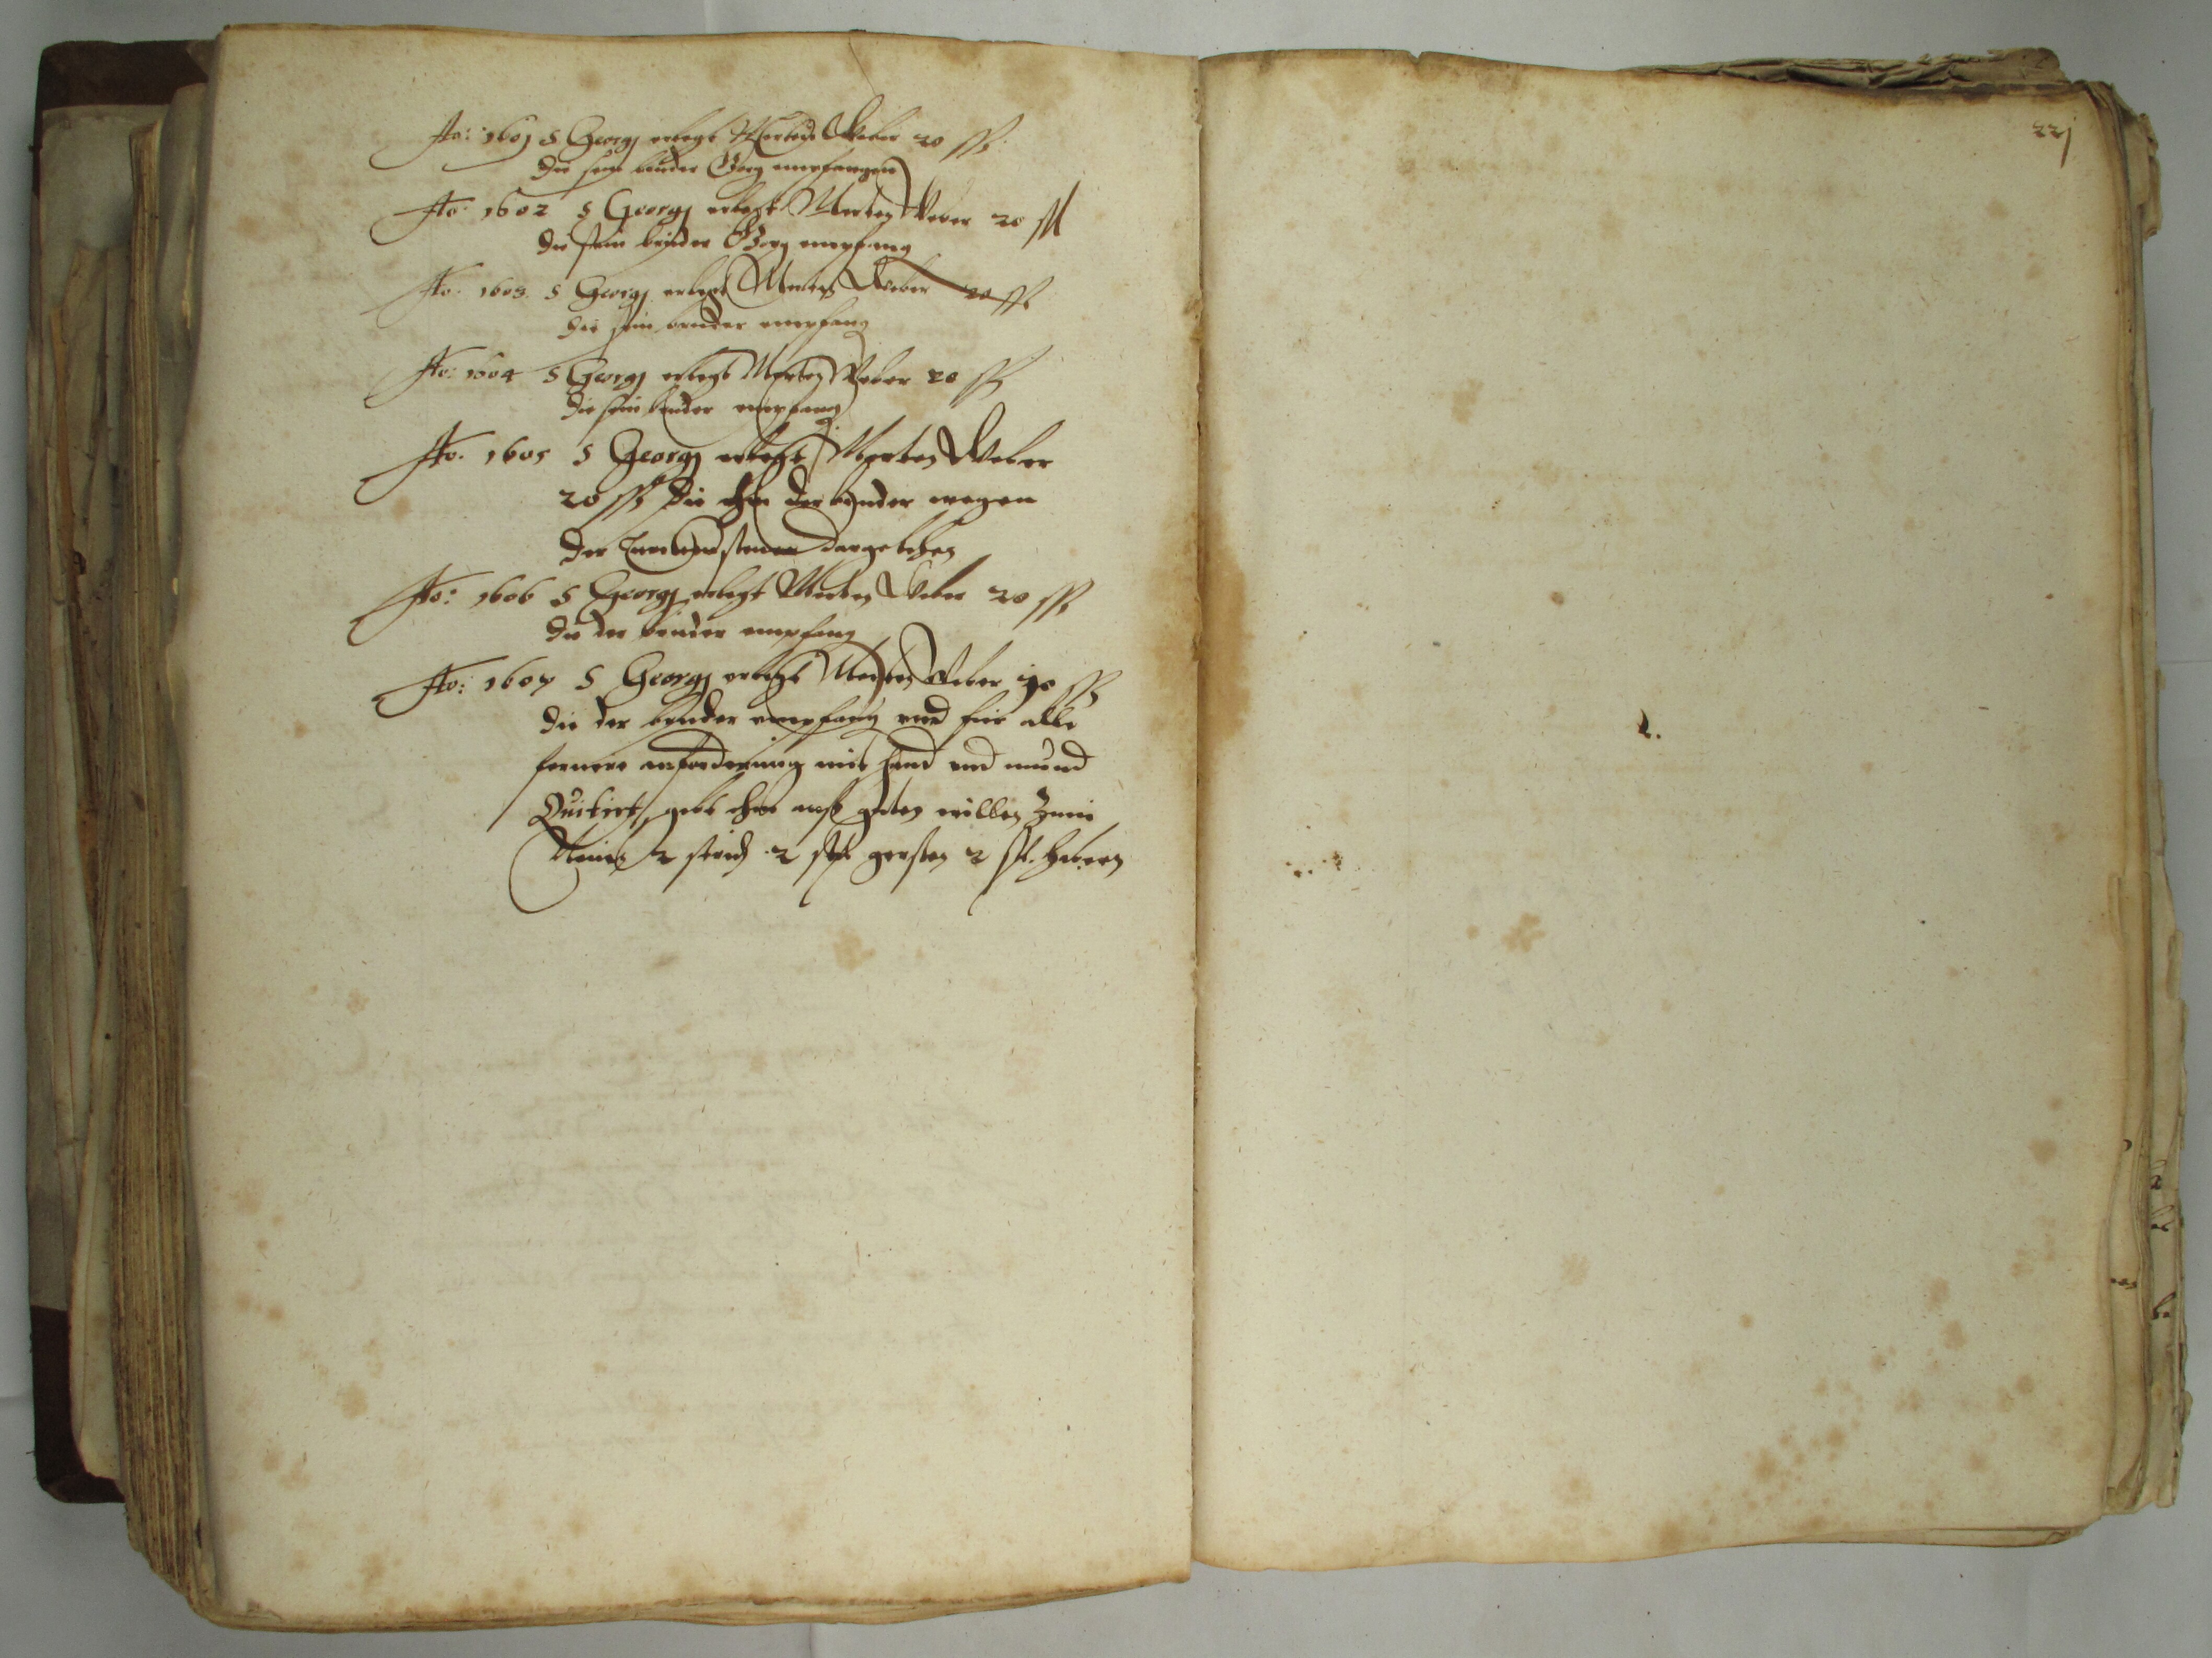 Ao: 1601 S Georgj erlegt Merten Weber 20 ß
die sein bruder Georg empfangen
Ao: 1602 S Georgj erlegt Merten Weber 20 ß
die sein bruder Georg empfang
Ao: 1603 S Georgj erlegt Merten Weber 20 ß
die sein bruder empfang
Ao: 1604 S Georgj erlegt Merten Weber 20 ß
die sein bruder empfang
Ao: 1605 S Georgj erlegt Merten Weber
20 ß die ihm der bruder wegen
der dargelihen
Ao: 1606 S Georgj erlegt Merten Weber 20 ß
die der bruder empfang
Ao: 1607 S Georgj erlegt Merten Weber ß
die der bruder empfang und für alle
fernere anforderung mit hand und mund
Quitirt, gibt ihm auß guten willen
2 strich 2 gersten 2 habern
221